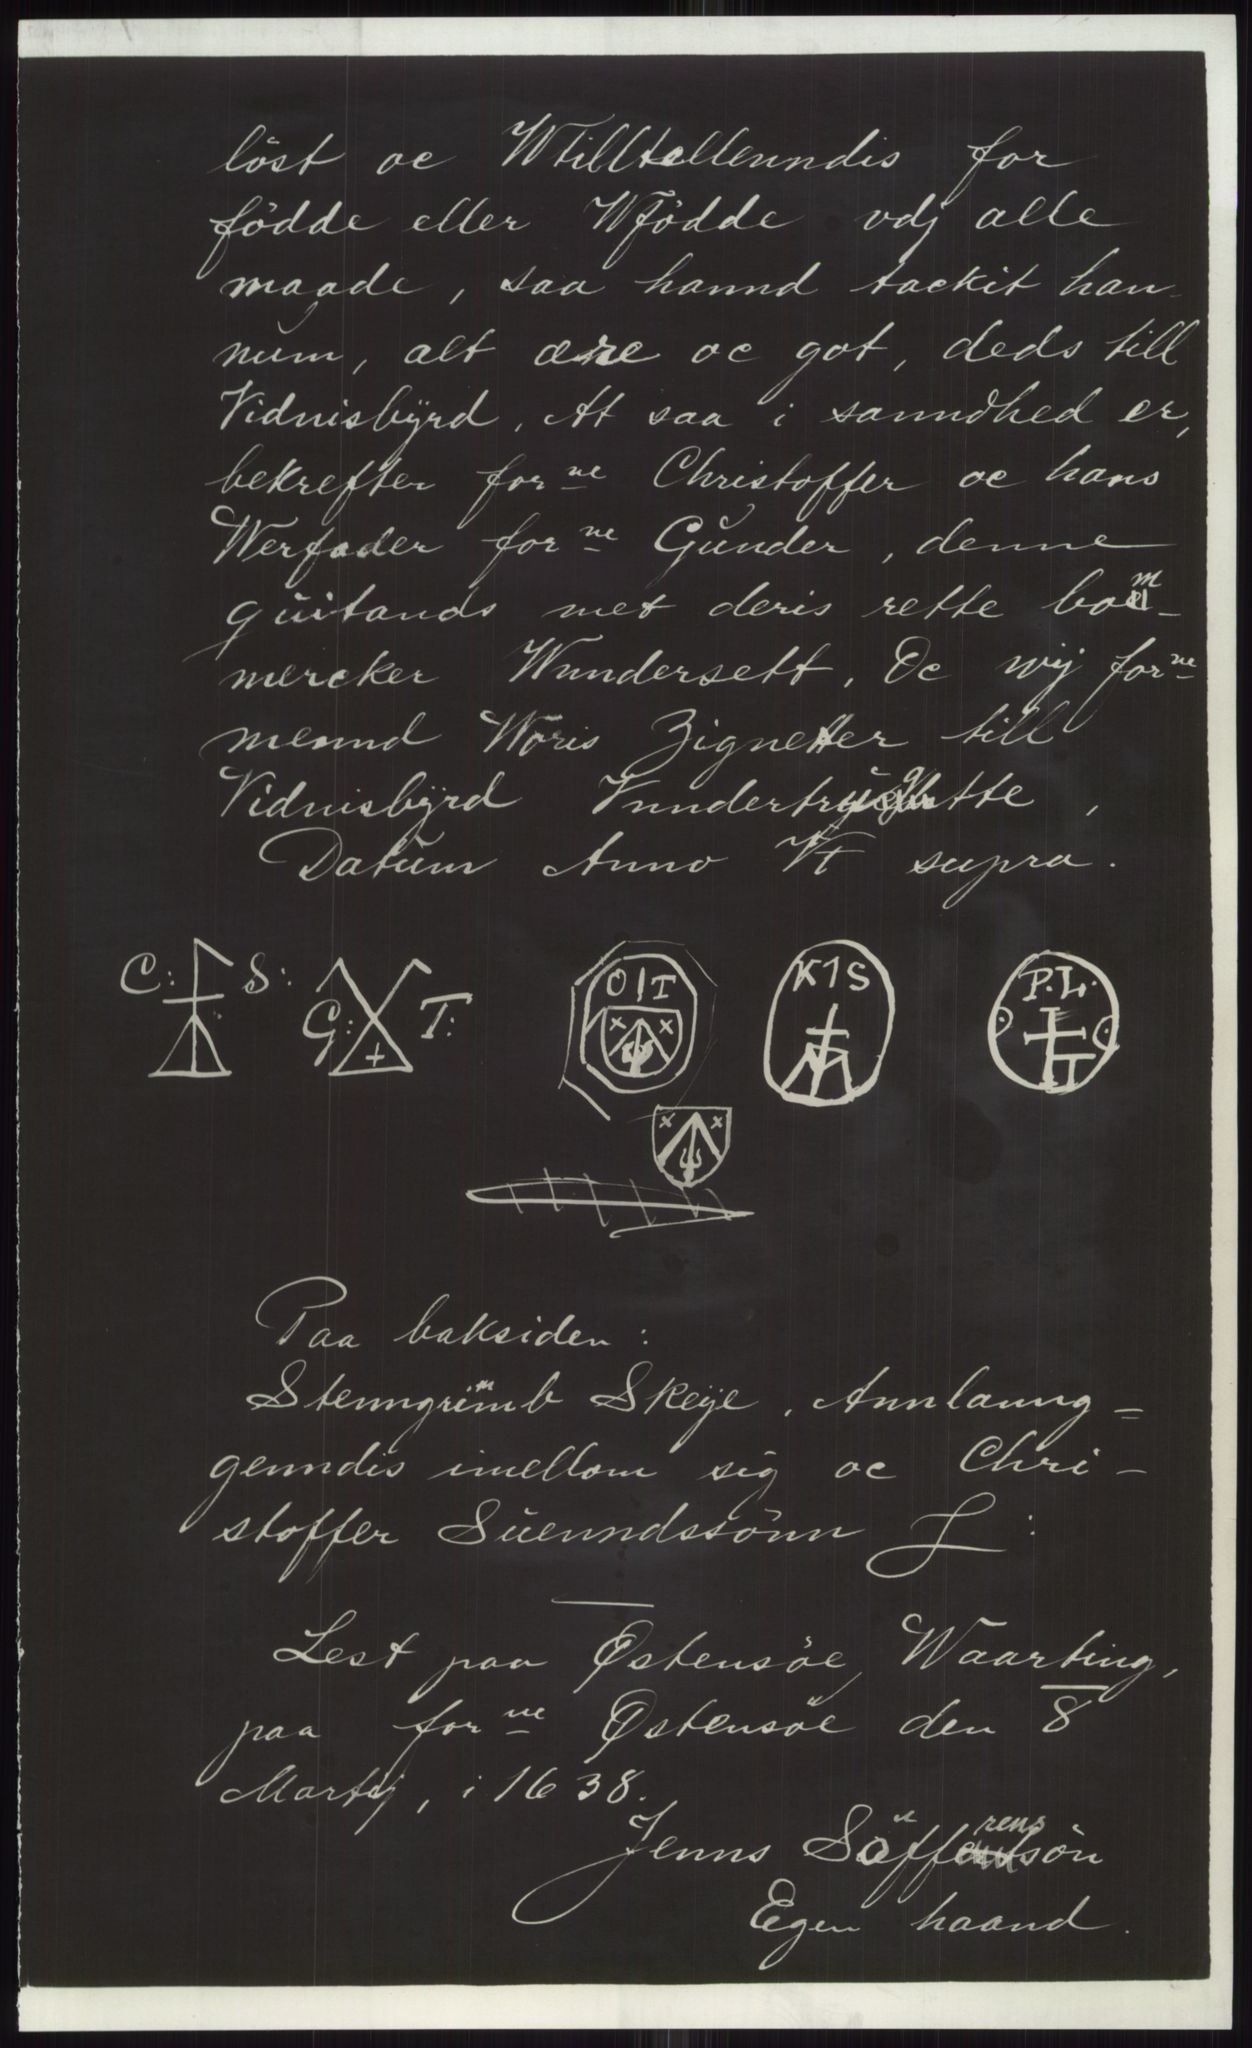 löst oc Wtilltallenndis for
födde eller Wfödde vdj alle
maade, saa hannd tackit han-
num, alt ære oc got, deds till
Vidnisbÿrd, At saa i sanndhed er,
bekrefter forne Christoffer oc hans
Werfader forne Gunder, denne
quitands met deris rette bom-
mercker Wundersett, Oc wij forne
mennd Woris Zignetter till
Vidnisbÿrd Vnndertrÿgtte,
Datum Anno Vt supra.
C: S: G: T: O I T K I S P. L.
Paa baksiden:
Stenngrimb Skeÿe, Annlanng-
genndis imellom sig oc Chri-
stoffer Suenndssönn L:
Lest paa Østensöe Waarting,
paa forne Østensöe den 8
Martij, i 1638.
Jenns Söffrenssön
Egen haand.